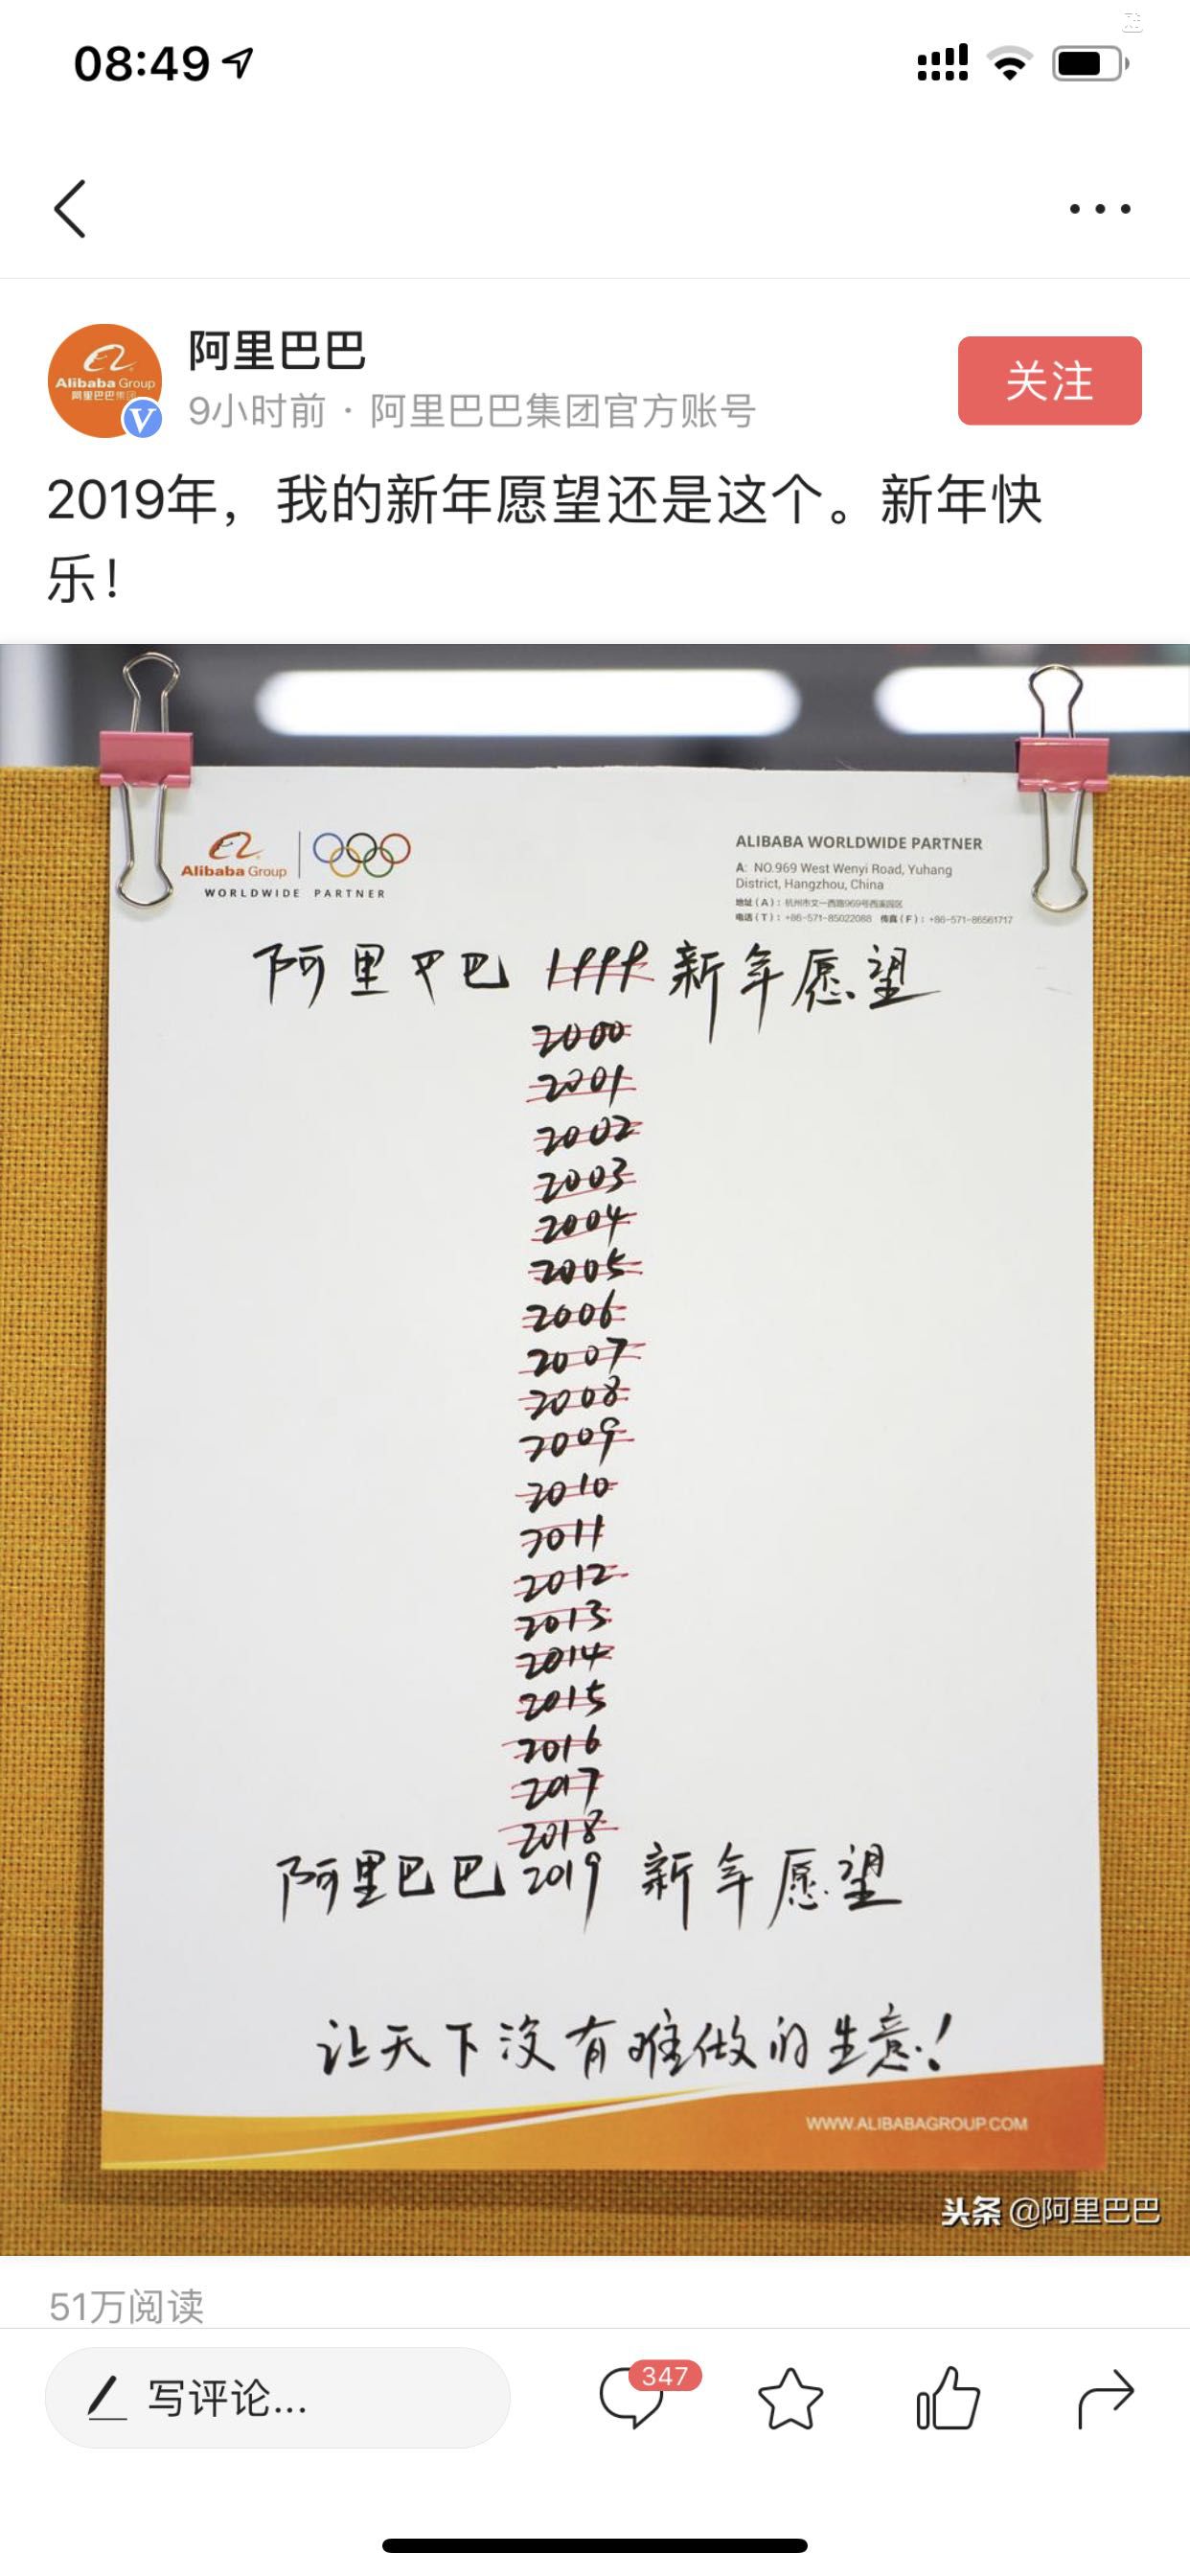 08:49
阿里巴巴
9小时前 · 阿里巴巴集团官方账号
关注
2019年，我的新年愿望还是这个。新年快
乐！
Alibaba Group
阿里巴巴集团
Alibaba Group
WORLDWIDE PARTNER
ALIBABA WORLDWIDE PARTNER
A: NO.969 West Wenyi Road, Yuhang
District, Hangzhou, China
地址(A)：杭州市文一西路969号西溪园区
电话(T)：+86-571-85022088 传真(F)：+86-571-86561717
阿里巴巴 1999 新年愿望
2000
2001
2002
2003
2004
2005
2006
2007
2008
2009
2010
2011
2012
2013
2014
2015
2016
2017
2018
阿里巴巴2019 新年愿望
让天下没有难做的生意！
WWW.ALIBABAGROUP.COM
头条 @阿里巴巴
51万阅读
写评论...
347